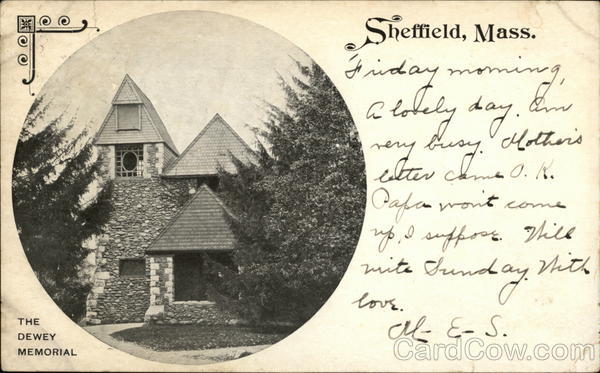 Sheffield, Mass.
Friday morning,
A lovely day. Am
very busy. Mother's
letter came O. K.
Papa won't come
up, I suppose. Will
write Sunday. With
love.
M- E- S.
THE
DEWEY
MEMORIAL
CardCow.com